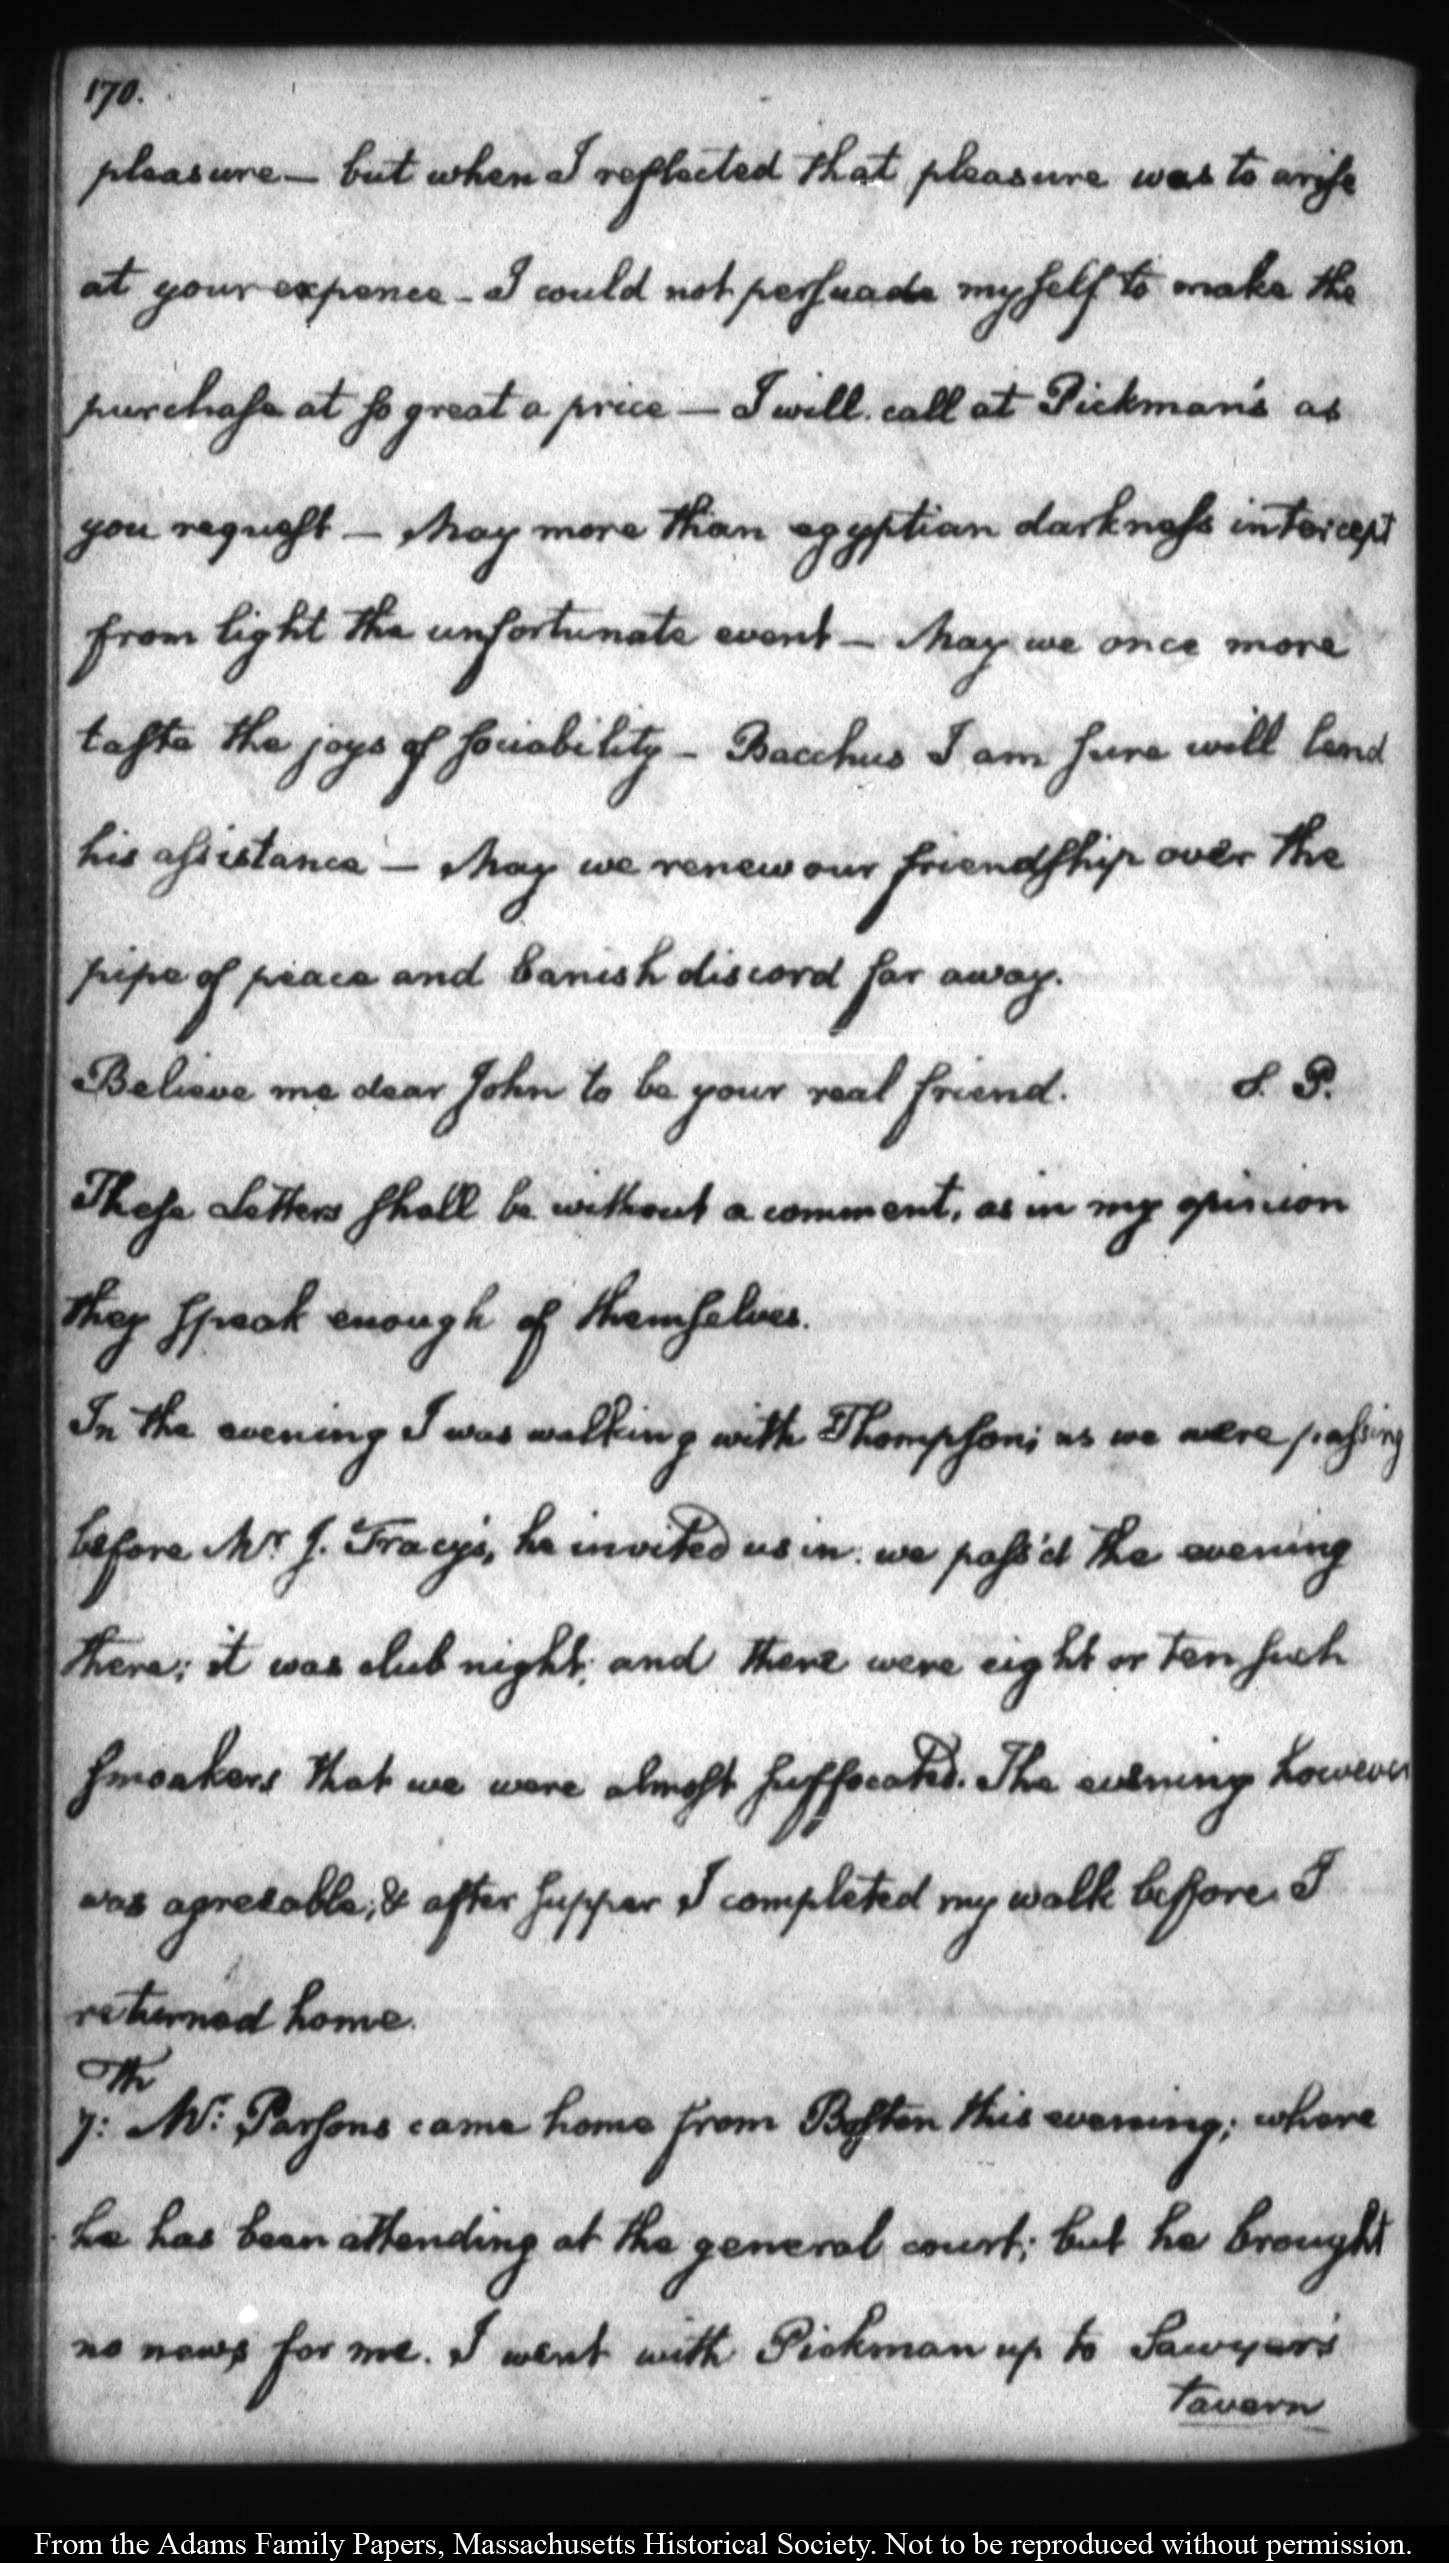 170.
pleasure — but when I reflected that pleasure was to arise
at your expence — I could not persuade myself to make the
purchase at so great a price — I will call at Pickman's as
you request — May more than egyptian darkness intercept
from light the unfortunate event — May we once more
taste the joys of sociability — Bacchus I am sure will lend
his assistance — May we renew our friendship over the
pipe of peace and banish discord far away.
Believe me dear John to be your real friend. S. P.
These Letters shall be without a comment, as in my opinion
they speak enough of themselves.
In the evening I was walking with Thompson; as we were passing
before Mr. J. Tracy's, he invited us in: we pass'd the evening
there; it was club night; and there were eight or ten such
smoakers that we were almost suffocated. The evening however
was agreeable; & after supper I completed my walk before I
returned home.
Th
7: Mr: Parsons came home from Boston this evening; where
he has been attending at the general court; but he brought
no news for me. I went with Pickman up to Sawyer's
tavern
From the Adams Family Papers, Massachusetts Historical Society. Not to be reproduced without permission.